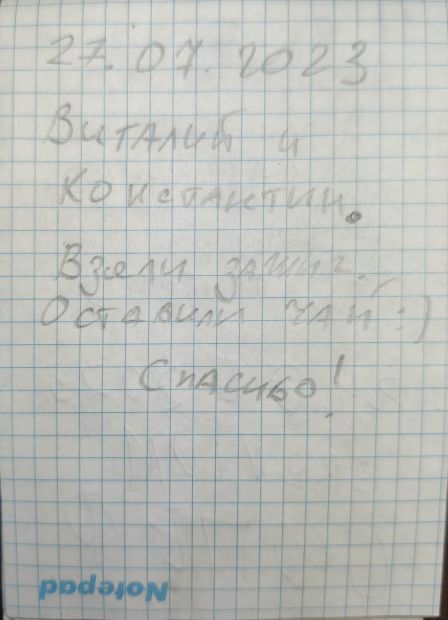 27.07.2023
Виталий и
Константин.
Взяли зажиг.
Оставили чай :)
Спасибо!
Notepad